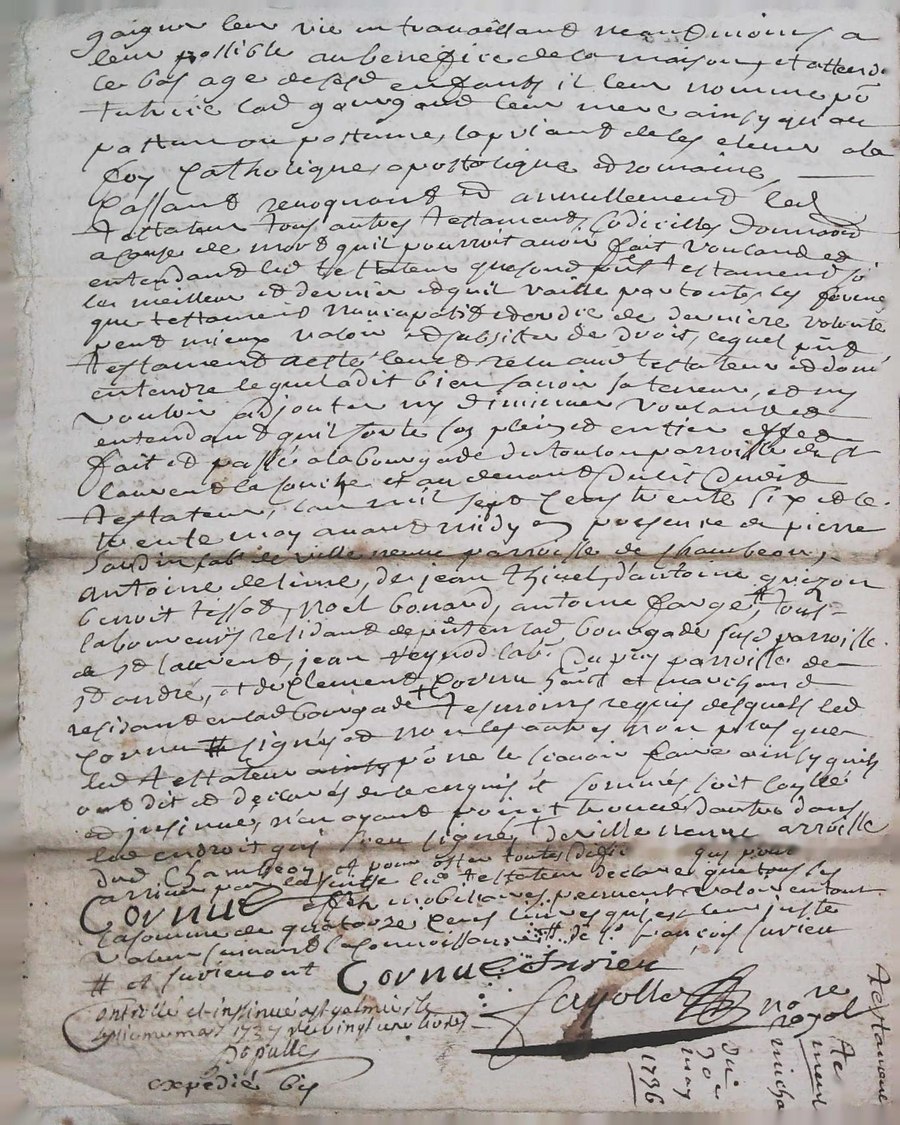 gaigner leur vie en travailland neandmoins a
leur possible au benefice de la maison, et attendu
le bas age desd enfants il leur nomme po
tutrice lad gourgaud leur mere ainsy qu'au
pasthume ou postume, la priant de les elever a la
foy Catholique, apostolique et romaine,
Cassand revoquand et annullemend led
testateur tous autres testaments, Codicilles donnaons
a cause de mord qu'il pourroit avoir fait vouland et
entendand led testateur que son d pnt testamend soit
le meilleur et dernier et qu'il vaille par toutes les formes
que testament nuncupatif et ordre de derniere volonte
peut mieux valoir et subsister de droit, lequel pnt
testament a esté leu et releu aud testateur et donné
entendre lequel a dit bien savoir sa teneur, et ny
vouloir adjouter ny diminuer voulant et
entendand qu'il sorte son plein et entier effet
fait et passé a la bourgade du toulon parroisse de st
laurent la conche et au devand du lit dudit
testateur, l'an mil sept cens trente six et le
trente may avand midy en presence de pierre
lab de ville neuve parroisse de Chambeon,
antoine delime, de jean thivel, d'antoine
benoit tissot, noel bonard, antoine farge # tous
laboureurs residant de pnt en lad bourgade susd parroisse
de st laurent, jean Reynod lab. Du puy parroisse de
st andré, et de Clement Cornu hoste et marchand
residant en lad bourgade tesmoins requis desquels led
Cornu # signés et non les autres non plus que
led testateur ainsy po ne le scavoir faire ainsy qu'ils
ont dit et declarés de ce enquis et sommés soit
et insinué, n'en ayant point trouvé d'autre dans
led endroit qui sceu signer + de ville neuve parroisse
dud Chambeon et pour oster toutes qui pour
arriver par la suitte led testateur declare que tous ses
Cornu effets mobiliaires peuvent valoir en tout
la somme de quatorze cens livres qui est leur juste
valeur suivant la connoissance # de sr François Jurieu
# et Jurieu ont Cornu Jurieu
Controllé et insinué a st galmier le
mars 1737 reçu vingt une livres
Depulle
expedié by
Fayolle no re
royal
Testament
De
mard
micha
du
30e
may
1736